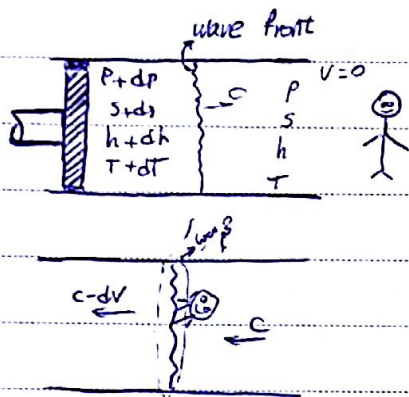 wave front
P+dp
s+ds
h+dh
T+dT
C
P
s
h
T
V=0
C-dV
C